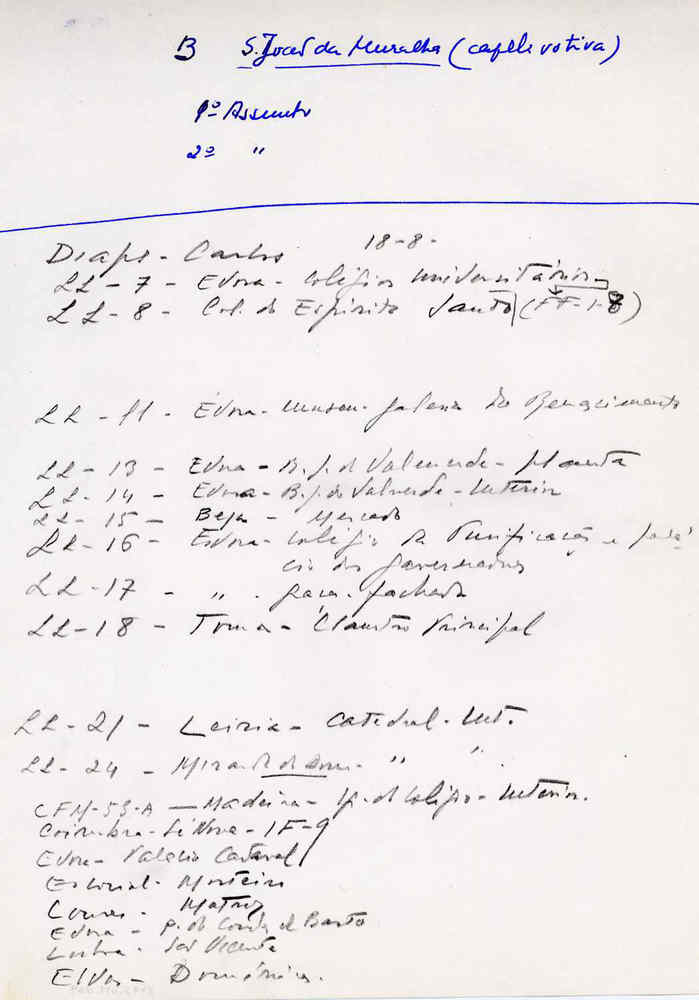 B S. João da Muralha (capela votiva)
1º Assunto
2º "
Diaps - Carlos 18-8-
LL-7 - Evora - Colégios Universitários
LL-8 - Col. do Espírito Santo (FF-1-8)
LL-11 - Évora - Museu - galeria do Renascimento
LL-13 - Evora - B. J. de Valverde - planta
LL-14 - Evora - B. J. de Valverde - interior
LL-15 - Beja - Mercado
LL-16 - Evora - Colégio da Purificação e palá
cio dos governadores
LL-17 - " - fachada
LL-18 - Tomar - Claustro Principal
LL-21 - Leiria - Catedral - Int.
LL-24 - Miranda do Douro - " "
CFM-53-A - Madeira - Ig. do Colégio - Interior.
Coimbra - Sé Nova - 1F-9
Evora - Palacio Cadaval
Escorial - Mosteiro
Matriz
Evora - P. do Conde de Basto
Lisboa - São Vicente
Elvas - Domínicas.